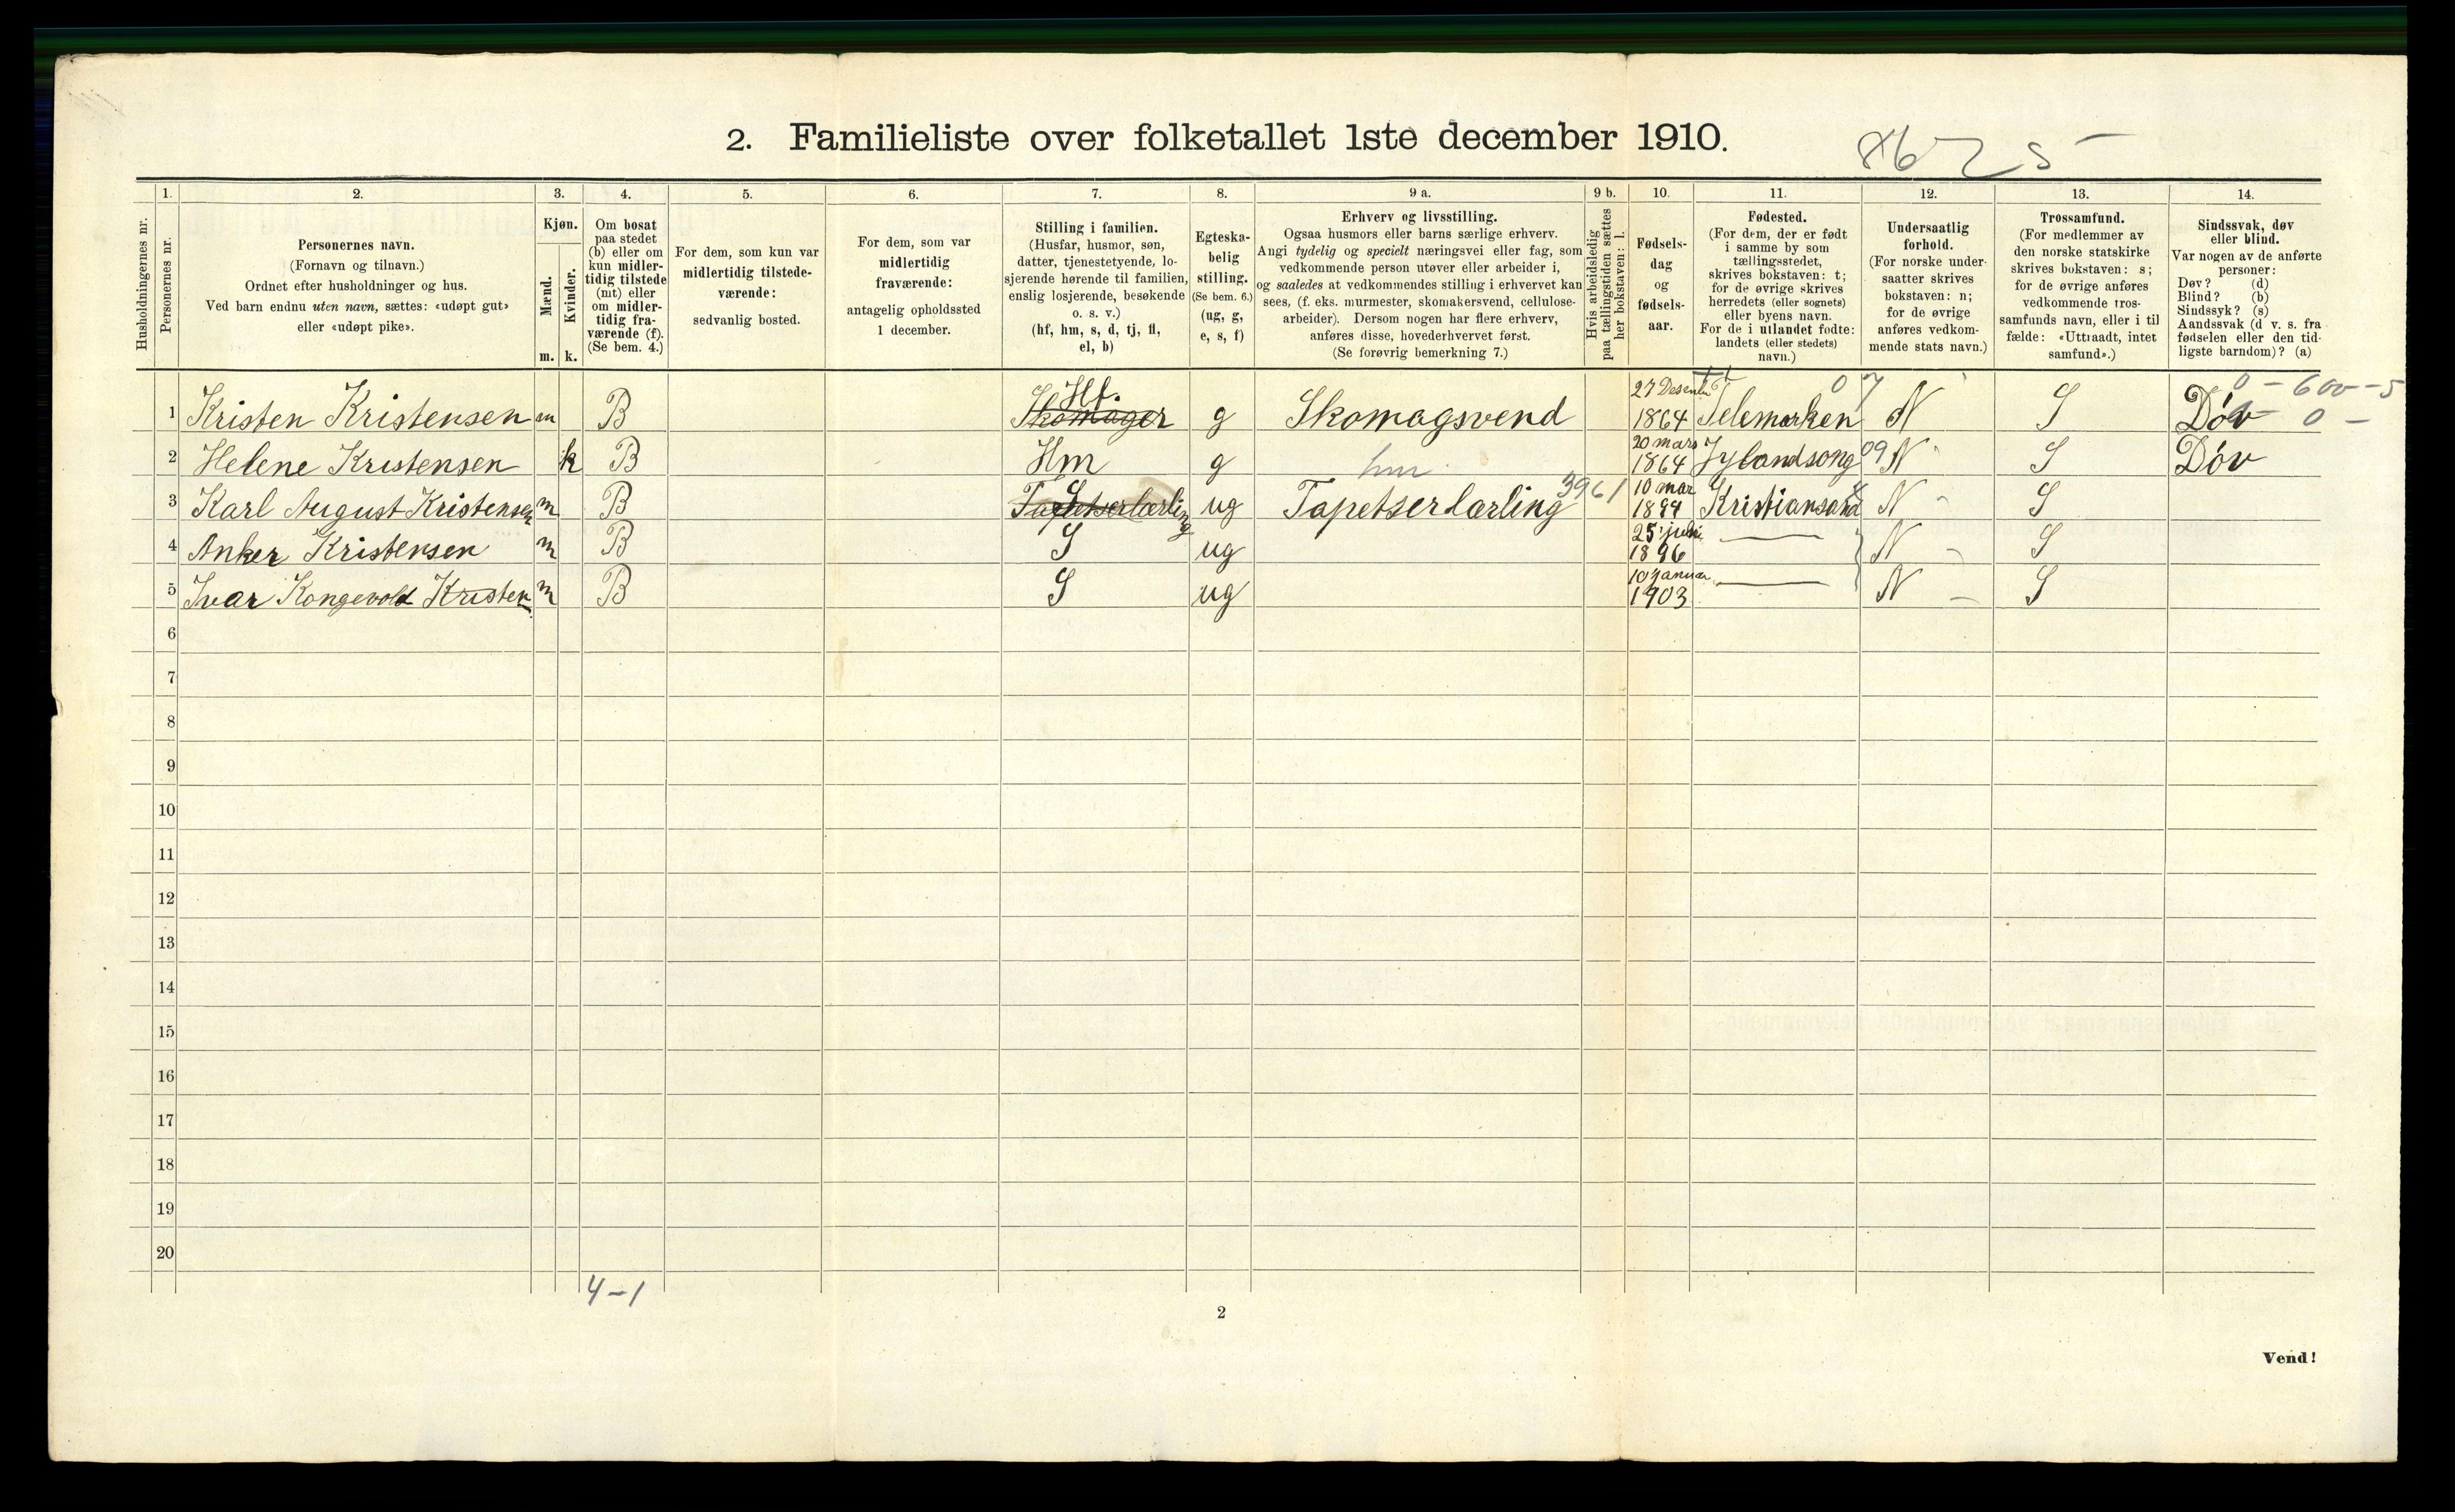 2. Familieliste over folketallet 1ste december 1910.
Husholdningernes nr.
1.
Personernes nr.
2.
Personernes navn.
(Fornavn og tilnavn.)
Ordnet efter husholdninger og hus.
Ved barn endnu uten navn, sættes: «udøpt gut»
eller «udøpt pike».
3.
Kjøn.
Mænd.
Kvinder.
m. k.
4.
Om bosat
paa stedet
(b) eller om
kun midler-
tidig tilstede
(mt) eller
om midler-
tidig fra-
værende (f).
(Se bem. 4.)
5.
For dem, som kun var
midlertidig tilstede-
værende:
sedvanlig bosted.
6.
For dem, som var
midlertidig
fraværende:
antagelig opholdssted
1 december.
7.
Stilling i familien.
(Husfar, husmor, søn,
datter, tjenestetyende, lo-
sjerende hørende til familien,
enslig losjerende, besøkende
o. s. v.)
(hf, hm, s, d, tj, fl,
el, b)
8.
Egteska-
belig
stilling.
(Se bem. 6.)
(ug, g,
e, s, f)
9 a.
Erhverv og livsstilling.
Ogsaa husmors eller barns særlige erhverv.
Angi tydelig og specielt næringsvei eller fag, som
vedkommende person utøver eller arbeider i,
og saaledes at vedkommendes stilling i erhvervet kan
sees, (f. eks. murmester, skomakersvend, cellulose-
arbeider). Dersom nogen har flere erhverv,
anføres disse, hovederhvervet først.
(Se forøvrig bemerkning 7.)
9 b.
Hvis arbeidsledig
paa tællingstiden sættes
her bokstaven: l.
10.
Fødsels-
dag
og
fødsels-
aar.
11.
Fødested.
(For dem, der er født
i samme by som
tællingsstedet,
skrives bokstaven: t;
for de øvrige skrives
herredets (eller sognets)
eller byens navn.
For de i utlandet fødte:
landets (eller stedets)
navn.)
12.
Undersaatlig
forhold.
(For norske under-
saatter skrives
bokstaven: n;
for de øvrige
anføres vedkom-
mende stats navn.)
13.
Trossamfund.
(For medlemmer av
den norske statskirke
skrives bokstaven: s;
for de øvrige anføres
vedkommende tros-
samfunds navn, eller i til
fælde: «Uttraadt, intet
samfund».)
14.
Sindssvak, døv
eller blind.
Var nogen av de anførte
personer:
Døv? (d)
Blind? (b)
Sindssyk? (s)
Aandssvak (d v. s. fra
fødselen eller den tid-
ligste barndom)? (a)
1 Kristen Kristensen m B Skomager Hf. g Skomagsvend 27 Desember 1864 Telemarken 07 N S Døv 0 - 600 - 5
0 -
2 Helene Kristensen k B Hm g hm 20 mars 1864 09 N S Døv
3 Karl August Kristensen m B Tapetserlærling S ug Tapetserlærling 3961 10 mar 1894 Kristiansand N S
4 Anker Kristensen m B S ug 25 juli 1896 — N S
5 Ivar Kongevold Kristen m B S ug 10 januar 1903 — N S
6
7
8
9
10
11
12
13
14
15
16
17
18
19
20
4-1
2
Vend!